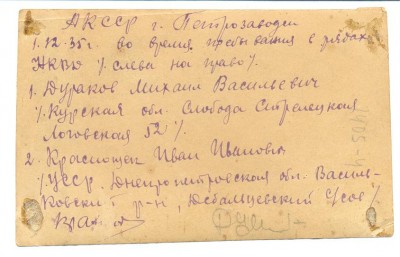 АКССР г. Петрозаводск
1.12.35г. во время пребывания в рядах
НКВД % слева на право %.
1. Дураков Михаил Васильевич
% Курская обл. Слобода Стрелецкая
Логовская 52 %
2. Краснощек Иван Иванович
% УССР, Днепропетровская обл. Василь-
ковский р-н, Дебальцевский с/сов %